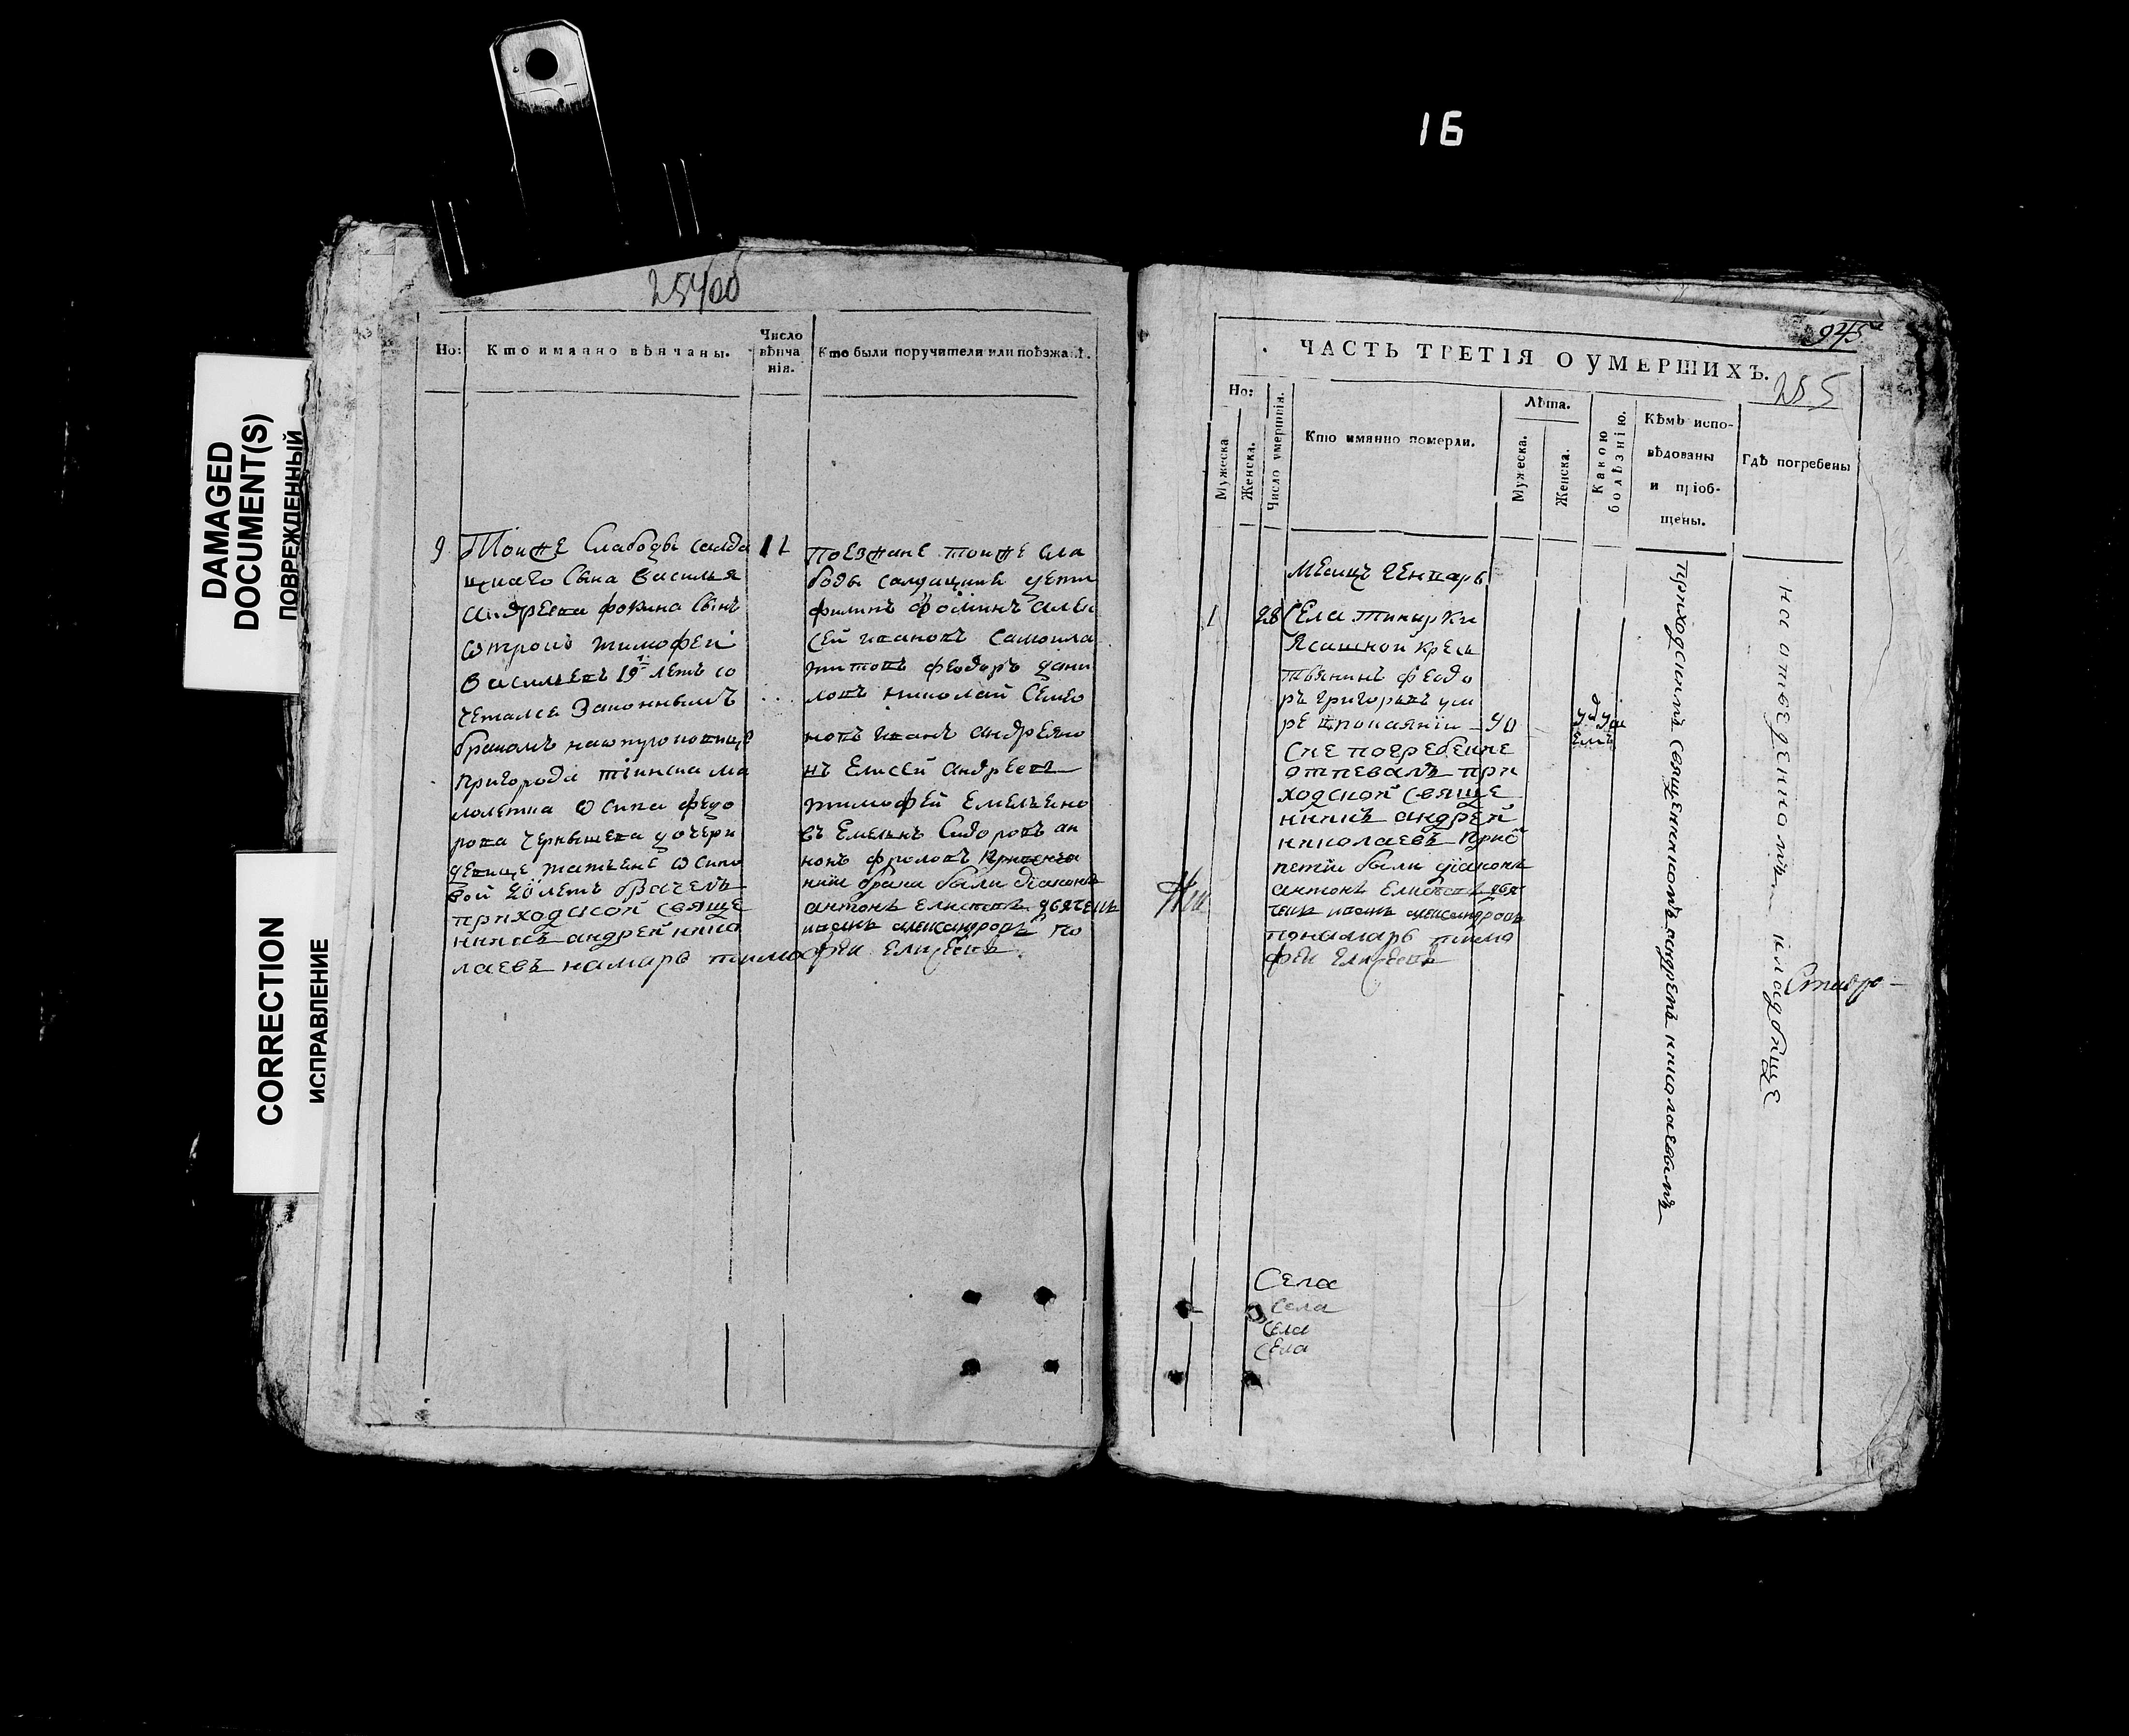 16
DAMAGED
DOCUMENT(S)
ПОВРЕЖДЕННЫЙ
CORRECTION
ИСПРАВЛЕНИЕ
Но:
Кто имянно вѣнчаны.
Число
вѣнча
нія.
Кто были поручители или поѣзжані.
9
Тоиже Слабоды салда
цкаго Сына Василья
андреева фокина Сынъ
отрокъ тимофеи
Васильевъ 19 летъ со
четался Законнымъ
бракомъ
пригорода тиинска ма
лолетка Осипа федо
рова чернышева дочери
девице татьяне Осипо
вой 20 летъ
приходской Свяще
нникъ андрей нико
лаевъ намарь тимофеи Елисеевъ
11
поезжане тоиже сла
боды салдацкие дети
филипъ фоминъ алек
сей ивановъ Самоила
титовъ феодоръ дани
ловъ николай Семио
новъ иванъ андреяно
въ Елисей андреевъ
тимофей Емельяно
въ Емельянъ Сидоровъ
фроловъ
браки были діаконъ
антонъ дьячекъ
иванъ александровъ по
945
ЧАСТЬ ТРЕТІЯ О УМЕРШИХЪ.
255
Но:
Мужеска
Женска.
Число умертвія.
Кто имянно померли.
Лѣта.
Мужеска.
Женска.
Какою
болѣзнію.
Кѣмъ испо-
вѣдованы
и пріоб-
щены.
Гдѣ погребены
Месицъ Генварь
1
28
Села тинарки
Ясашной крес
тьянинъ феодо
ръ григорьевъ ум
ре впокаянїи
40
Сие погребение
отпевалъ при
ходской Свяще
нникъ андрей
николаевъ При о
петїи были дїаконъ
антонъ дья
чекъ иванъ александровъ
понамарь тимо
феи Елисеевъ
приходскимъ Священникомъ андреемъ николаевымъ
на отведенномъ кладбище
Села
Села
Села
Села